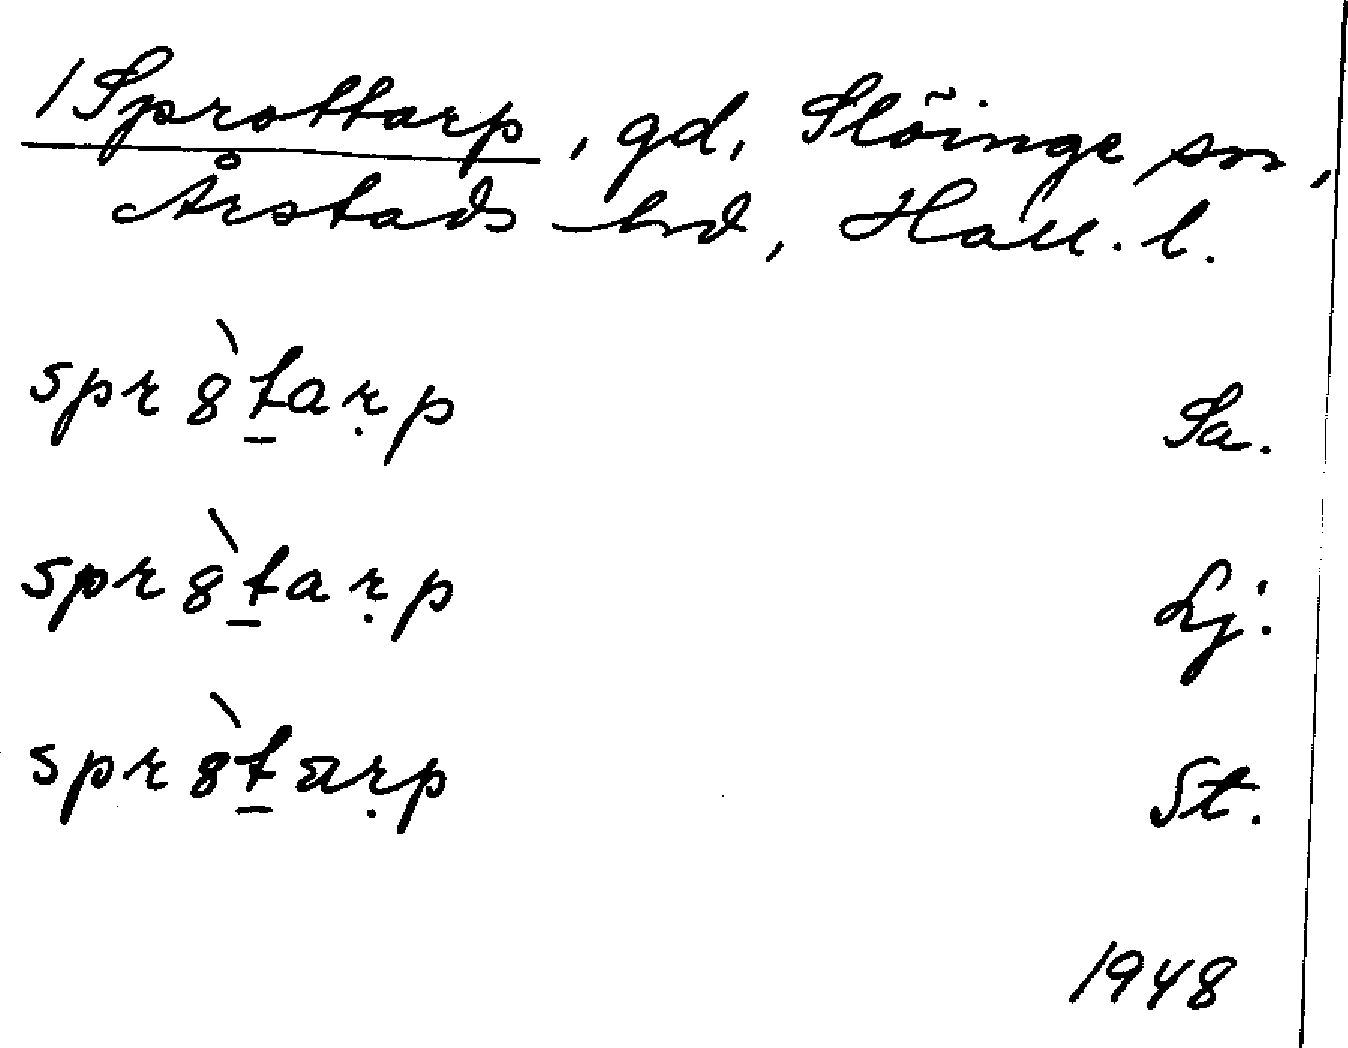 /Sprottarp, gd, Slöinge sn,
Årstads hd, Hall. l.
spr8̀t̲aṛp Sa.
spr8̀t̲aṛp Lj.
spr8̀t̲aṛp St.
1948